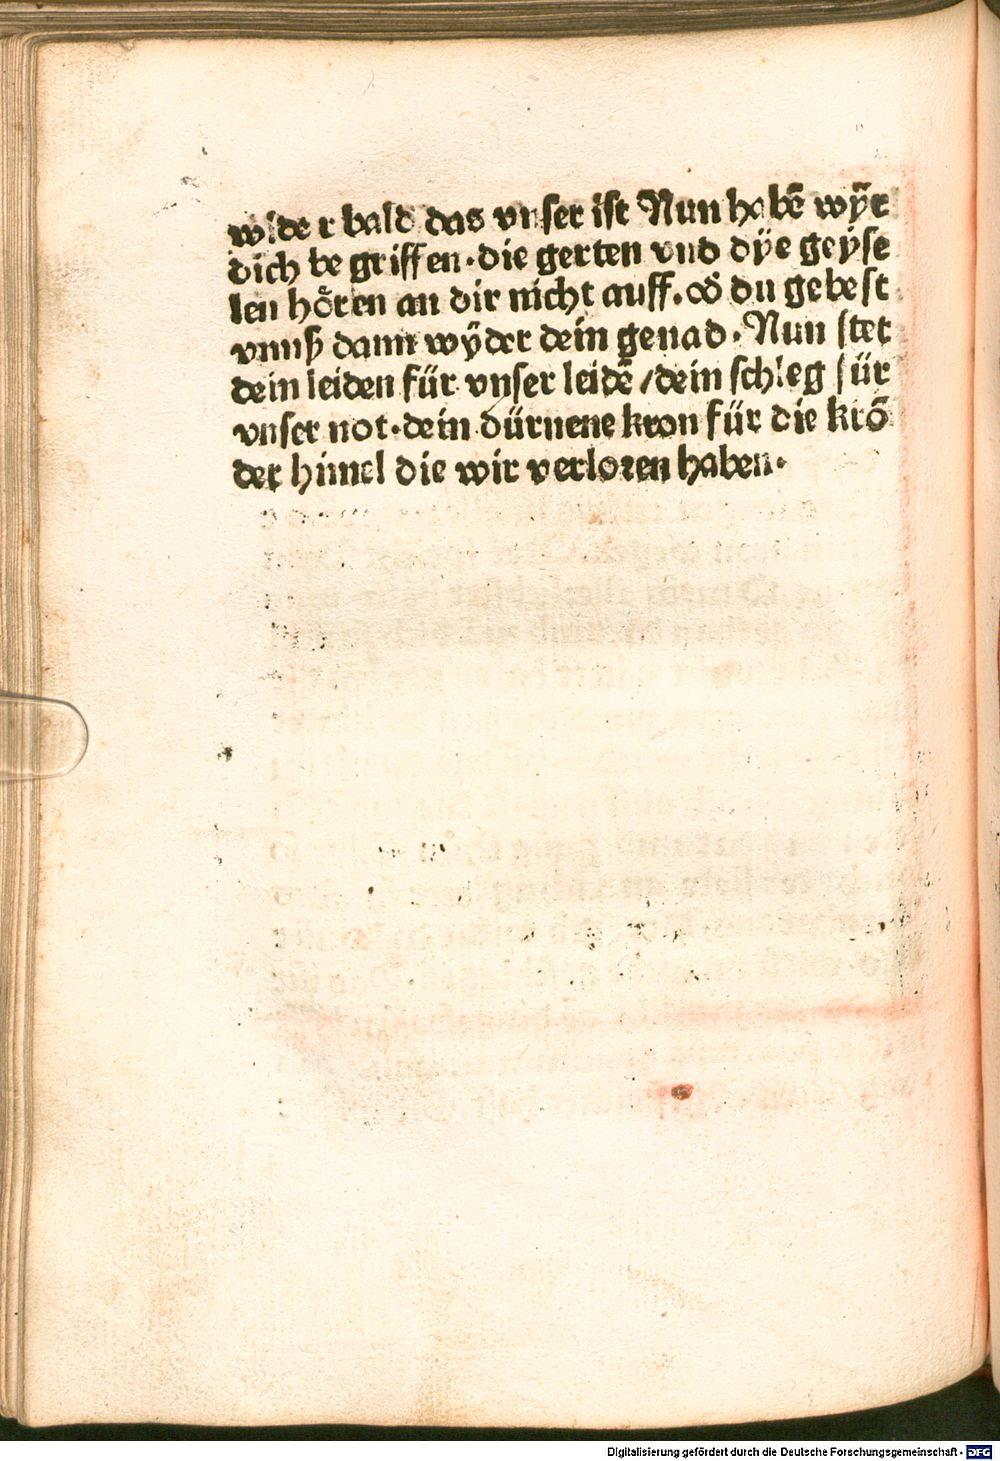 wider bald das vnser ist Nun habē wÿr
dich begriffen. die gerten vnd dÿe geÿse
len hören an dir nicht auff. dů gebest
vnnß dann wÿder dein genad. Nun stet
dein leiden für vnser leidē / dein schleg für
vnser not. dein dürnene kron für die krō
der himel die wir verloren haben.
Digitalisierung gefördert durch die Deutsche Forschungsgemeinschaft - DFG